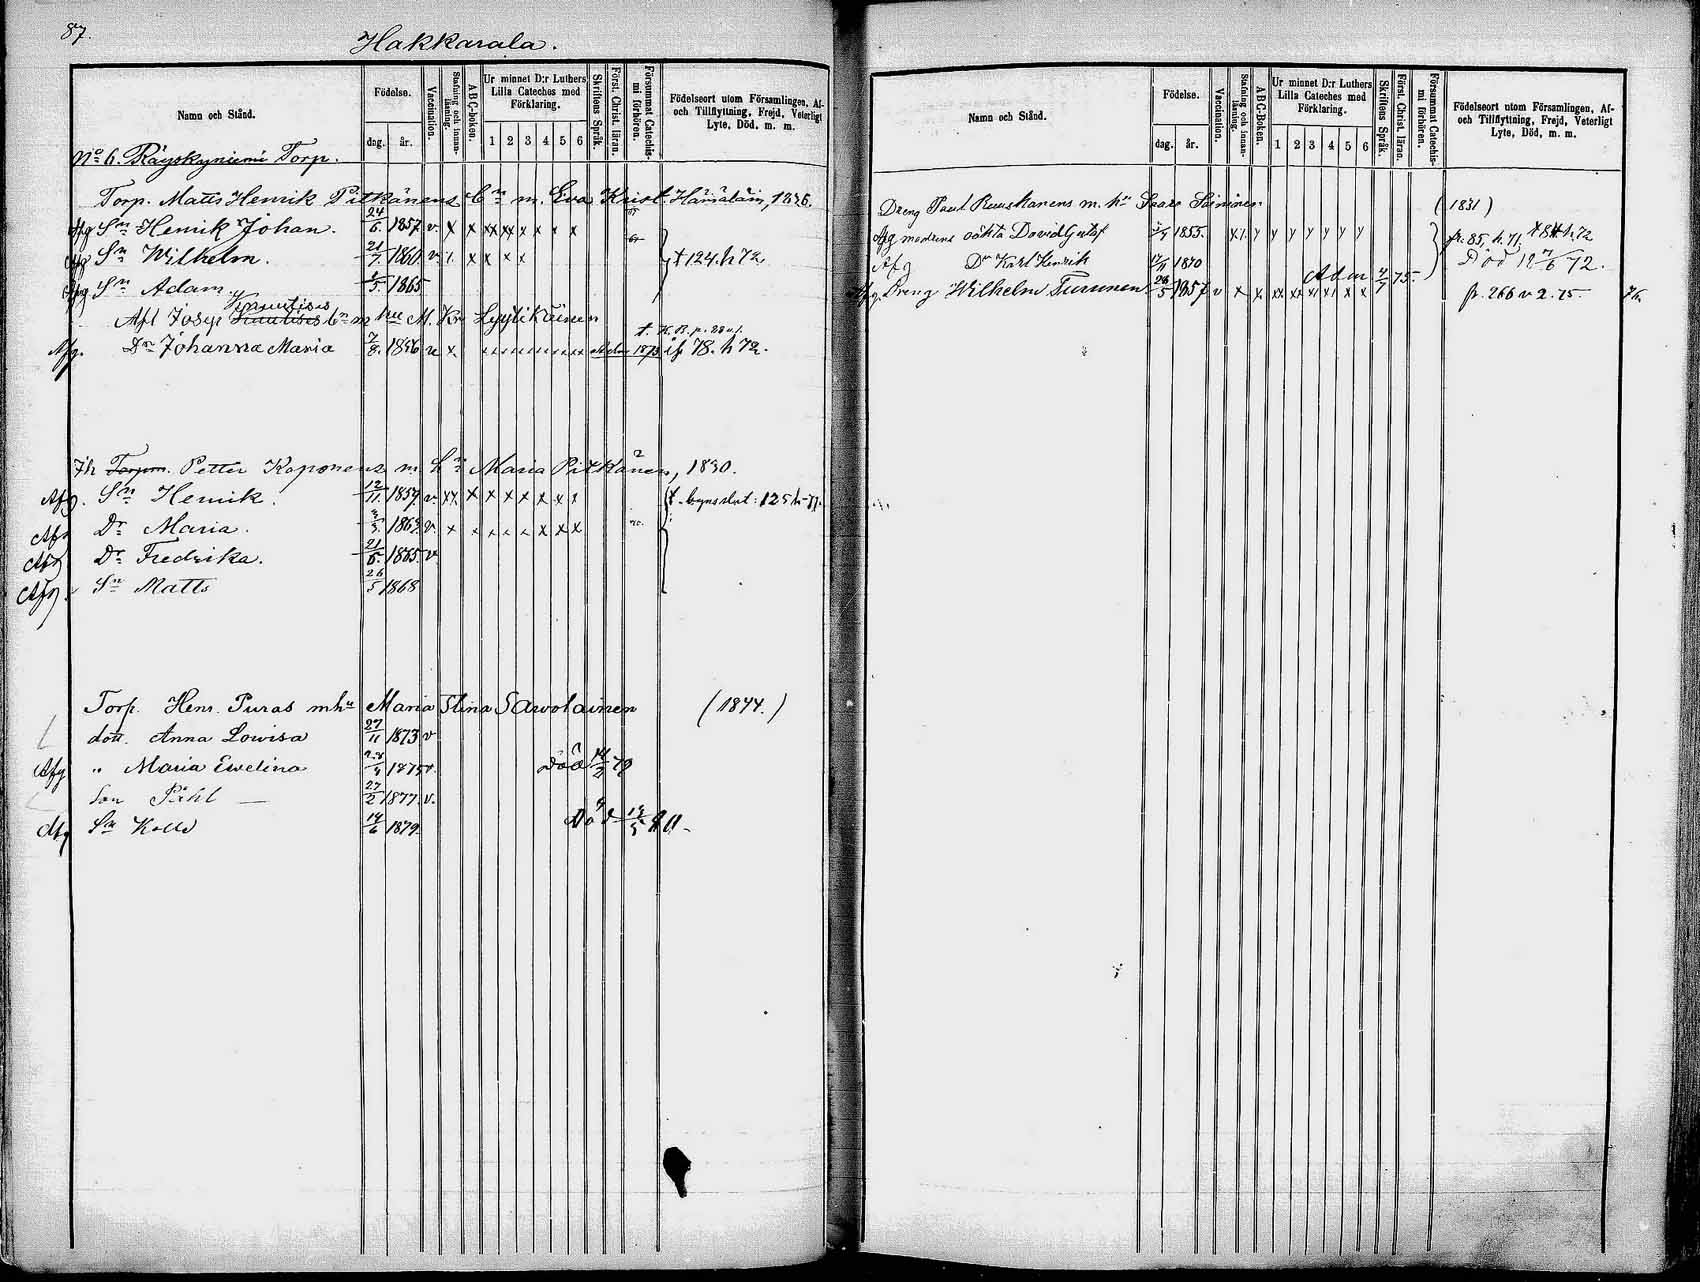 87.
Hakkarala.
Namn och Stånd.
Födelse.
dag.
år.
Vaccination.
Stafning och innanläsning.
A B C-boken.
Ur minnet D:r Luthers Lilla Cateches med Förklaring.
1 2 3 4 5 6
Skriftens Språk.
Först. Christ. läran.
Försummat Catechismi förhören.
Födelseort utom Församlingen, Af- och Tillflyttning, Frejd, Veterligt Lyte, Död, m. m.
No 6. Räyskyniemi Torp.
Torp. Matts Henrik Pitkänens Cn m. Eva Krist. Hämäläin, 1836.
Afg Sn Henrik Johan. 24/6 1857. v. x x xx xx x x x x
Afg Sn Wilhelm. 21/7 1860. v. x x x x † 124. h 72
Afg Sn Adam 1865
Kauutises
Afl Josep Cn m hu M. Kr Lyytikäinen
Afg. Dr Johanna Maria 7/8. 1856 v x 1873 78. h 72.
Jh Torpm. Petter Koponens m. hu Maria Pitkänen, 1830.
Afg. Sn Henrik. 12/11. 1857. v xx x x x x x x x 125 h
Afg Dr Maria. v. x x x x x x x x
Afg Dr Fredrika. 21/6. 1865. v.
Afg Sn Matts 26/5 1868
Torp. Henr. Puras m hu Maria Stina Sawolainen (1844.)
dott. Anna Lowisa 27/11 1873 v
Afg " Maria Ewelina 1875 v. Död 14/2 79
Son Påhl — 27/2 1877. v.
Afg Sn Kalle 14/6 1879. Död 80
Namn och Stånd.
Födelse.
dag.
år.
Vaccination.
Stafning och innanläsning.
A B C-Boken.
Ur minnet D:r Luthers Lilla Cateches med Förklaring.
1 2 3 4 5 6
Skriftens Språk.
Först. Christ. läran.
Försummat Catechismi förhören.
Födelseort utom Församlingen, Af- och Tillflyttning, Frejd, Veterligt Lyte, Död, m. m.
Dreng Paul Ruuskanens m. hu Saara Soininen (1831)
Afg modrens oäkta David Gustaf 1855. fr. 85, h. 71. h. 72
Afg Dn Karl Henrik 17/11 1870 Död 12/6 72.
Adm 4/7 75.
Afg. Dreng Wilhelm Turunen 26/5 1857 v x x xx xx x x fr. 266 v 2. 75.